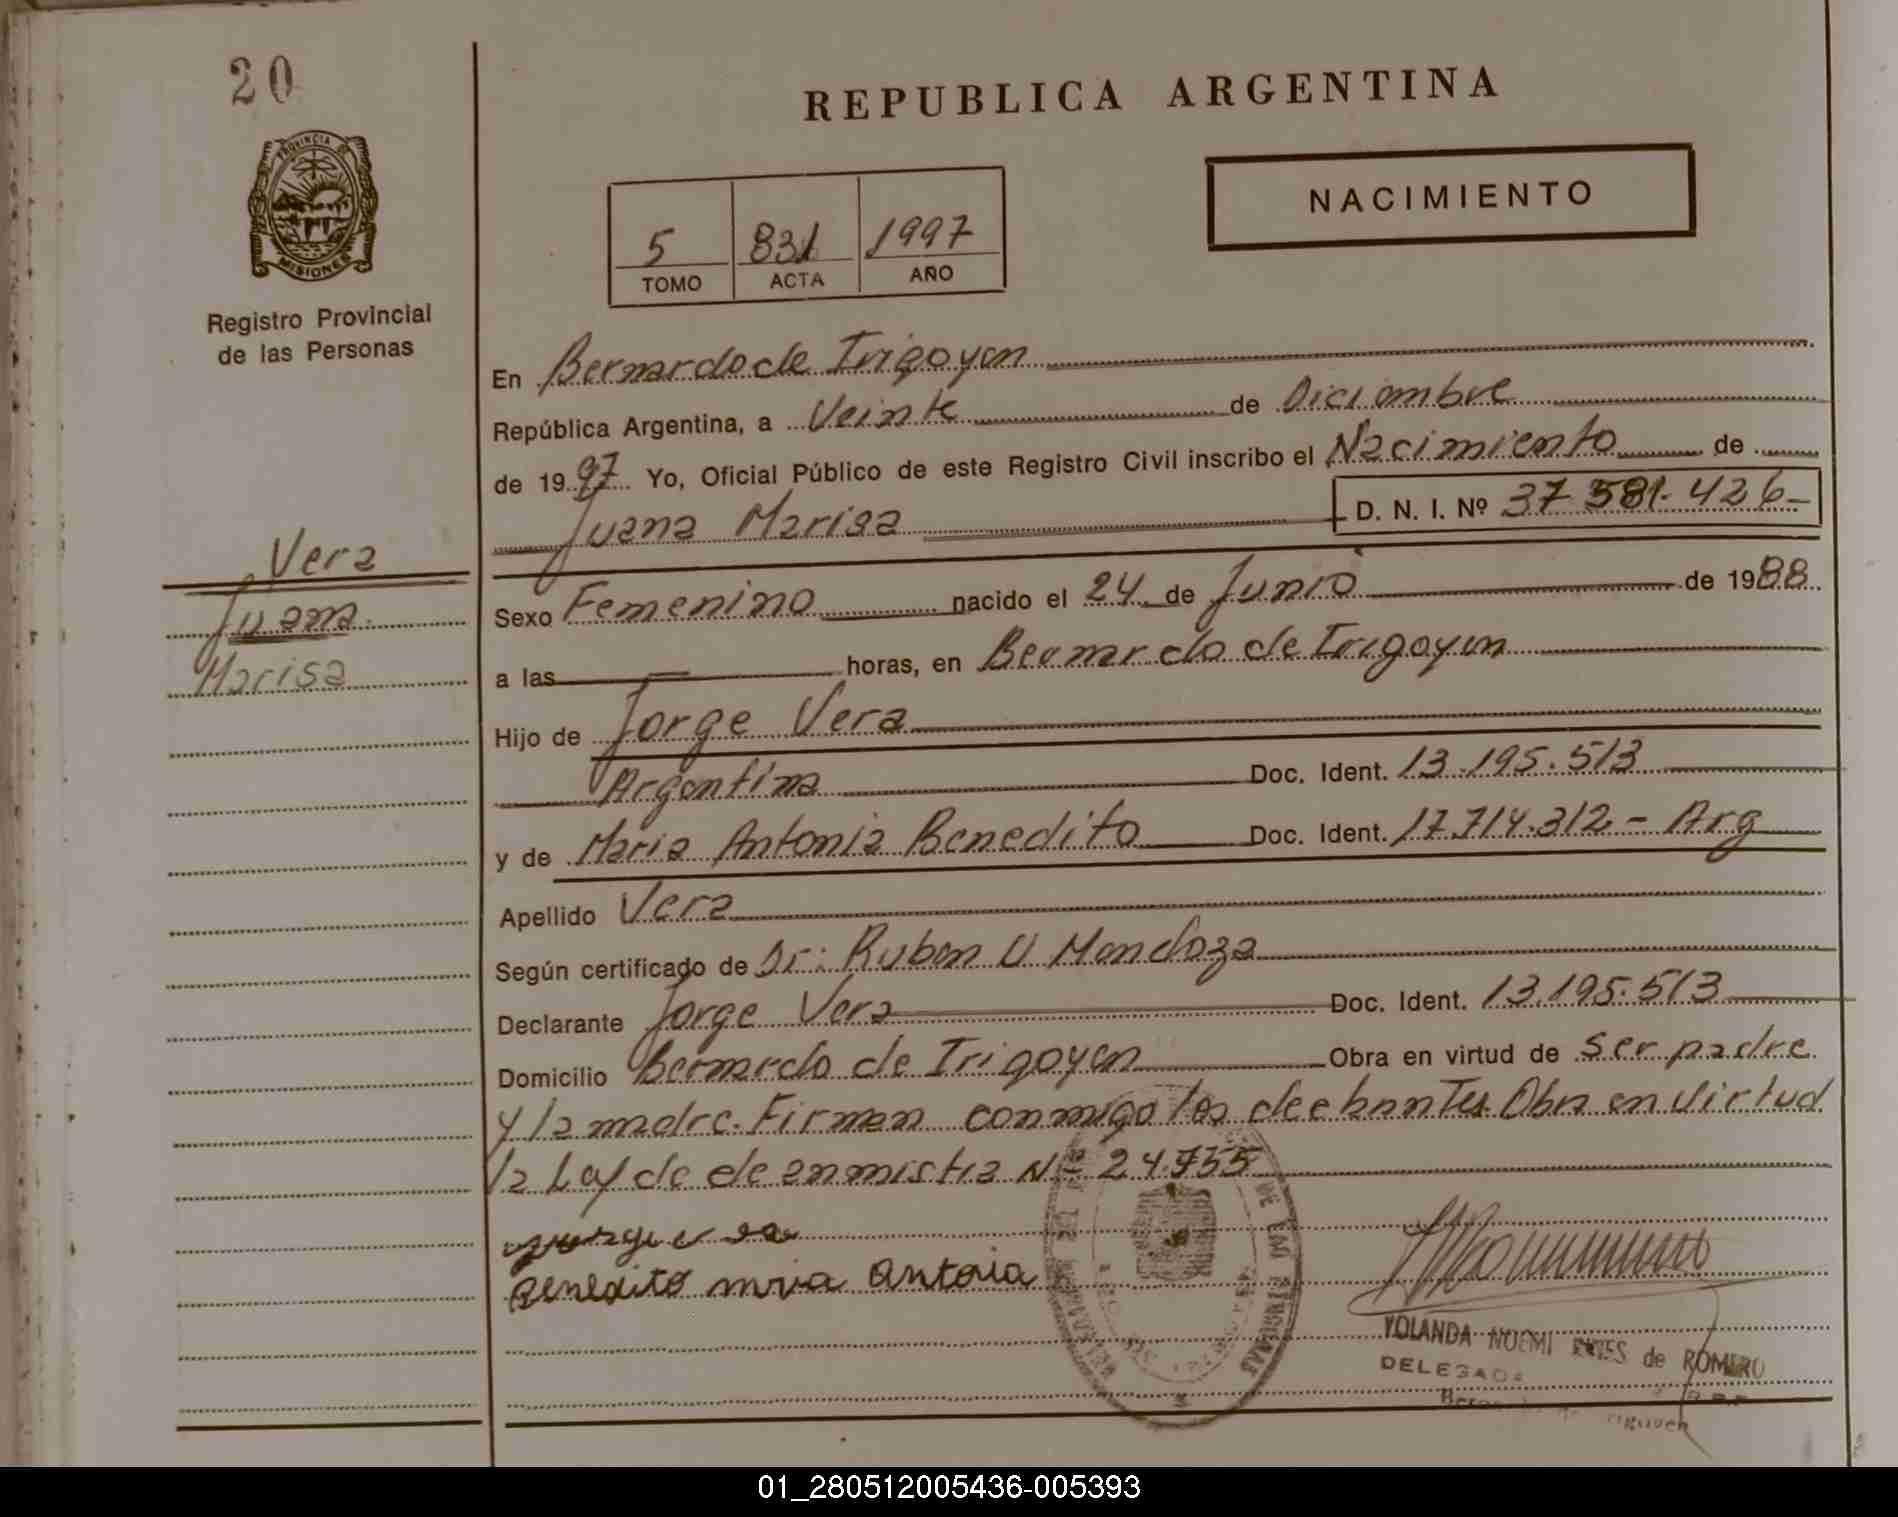 20
REPUBLICA ARGENTINA
NACIMIENTO
PROVINCIA DE
MISIONES
Registro Provincial
de las Personas
5 831 1997
TOMO ACTA AÑO
En Bernardo de Irigoyen
República Argentina, a Veinte de Diciembre
de 1997 Yo, Oficial Público de este Registro Civil inscribo el Nacimiento de
Juana Marisa D. N. I. Nº 37 581. 426
Vera
Juana
Marisa
Sexo Femenino nacido el 24 de Junio de 1988
a las — horas, en Bernardo de Irigoyen
Hijo de Jorge Vera
Argentina Doc. Ident. 13.195.513
y de Maria Antonia Benedito Doc. Ident. 17.714.312 - Arg
Apellido Vera
Según certificado de Dr: Ruben U Mendoza
Declarante Jorge Vera Doc. Ident. 13.195.513
Domicilio Bernardo de Irigoyen Obra en virtud de ser padre
y la madre. Firman conmigo los Obra en virtud
la Ley de de Nº 24.755
Benedito mria antonia
YOLANDA NOEMI de ROMERO
DELEGADA
01_280512005436-005393